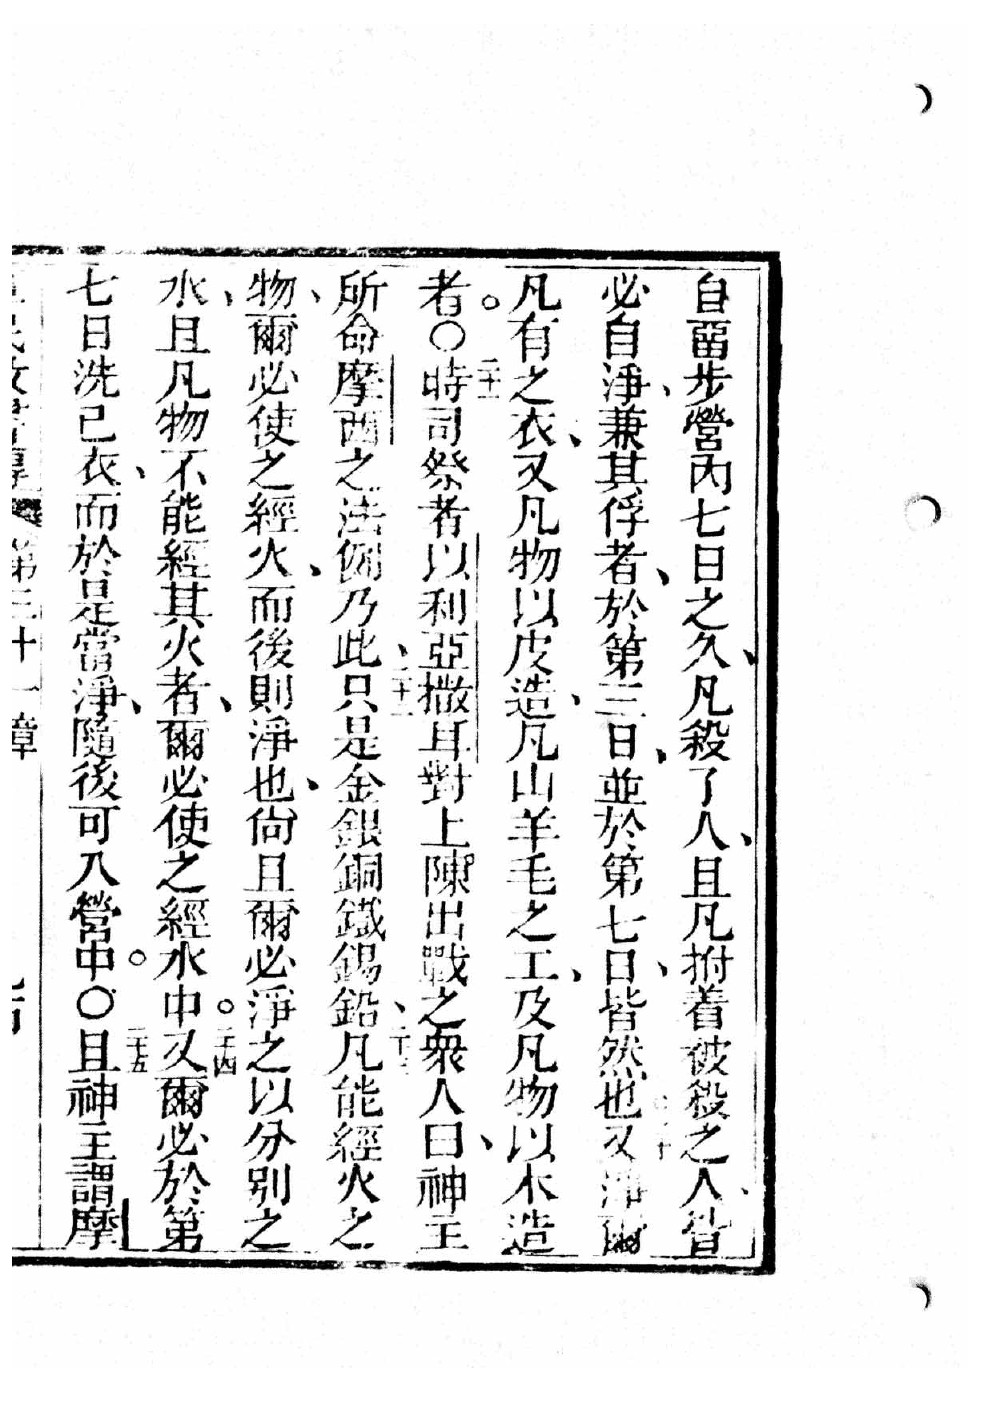 自畱步營內七日之久、凡殺了人、且凡拊着被殺之人、皆
必自淨、兼其俘者、於第三日、並於第七日、皆然也又淨爾
凡有之衣、又凡物以皮造、凡山羊毛之工、及凡物以木造
者。○二十一時司祭者以利亞撒耳對上陳出戰之衆人曰、神主
所命摩西之法例乃此、二十二只是金銀銅鐵錫鉛、凡能經火之
物、爾必使之經火、而後則淨也、尙且爾必淨之以分別之
水、且凡物不能經其火者、爾必使之經水中。二十四又爾必於第
七日洗己衣、而於是當淨、隨後可入營中。○二十五且神主謂摩
第三十一章